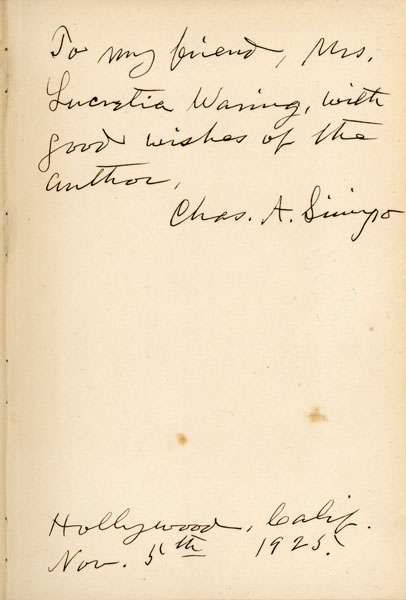 To my friend, Mrs.
Lucretia Waring, with
good wishes of the
author,
Chas. A.
Hollywood, Calif.
Nov. 5th 1925.